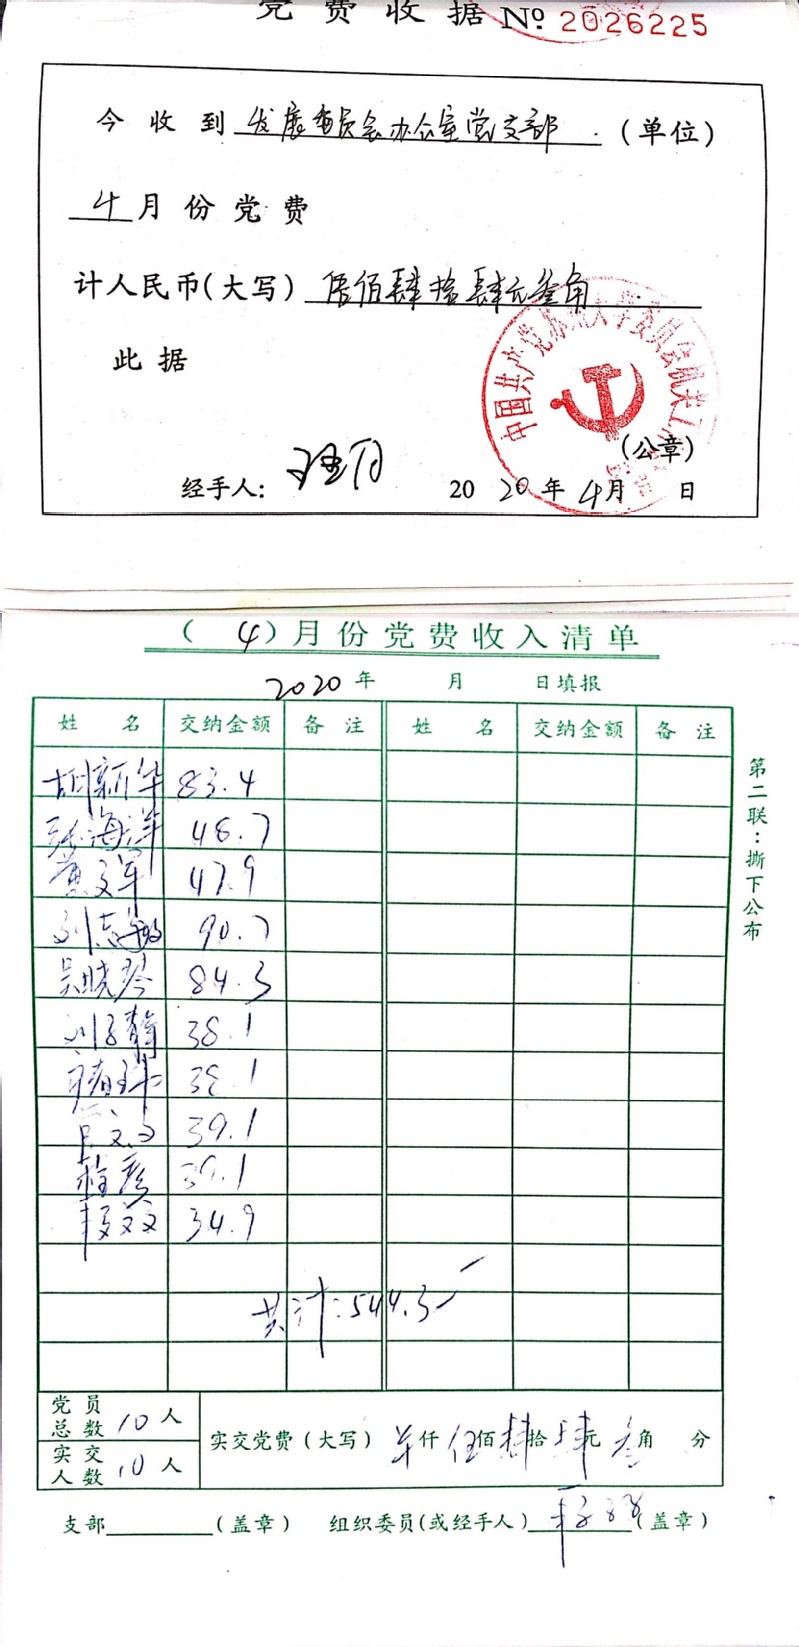 党费收据 Nº 2026225
今收到 发展委员会办公室党支部 (单位)
4月份党费
计人民币(大写) 伍佰肆拾肆元叁角
此据
中国共产党苏州大学委员会机关工
(公章)
经手人:
2020年4月 日
(4)月份党费收入清单
2020年 月 日填报
姓名 交纳金额 备注 姓名 交纳金额 备注
胡新华 83.4
张海洋 48.7
黄文军 47.9
刘志敏 90.7
吴晓琴 84.3
刘子静 38.1
38.1
39.1
程彦 39.1
文文 34.9
共计:544.3
党员总数 10人
实交人数 10人
实交党费(大写) 仟伍佰肆拾肆元叁角 分
支部 (盖章) 组织委员(或经手人) (盖章)
第二联:撕下公布